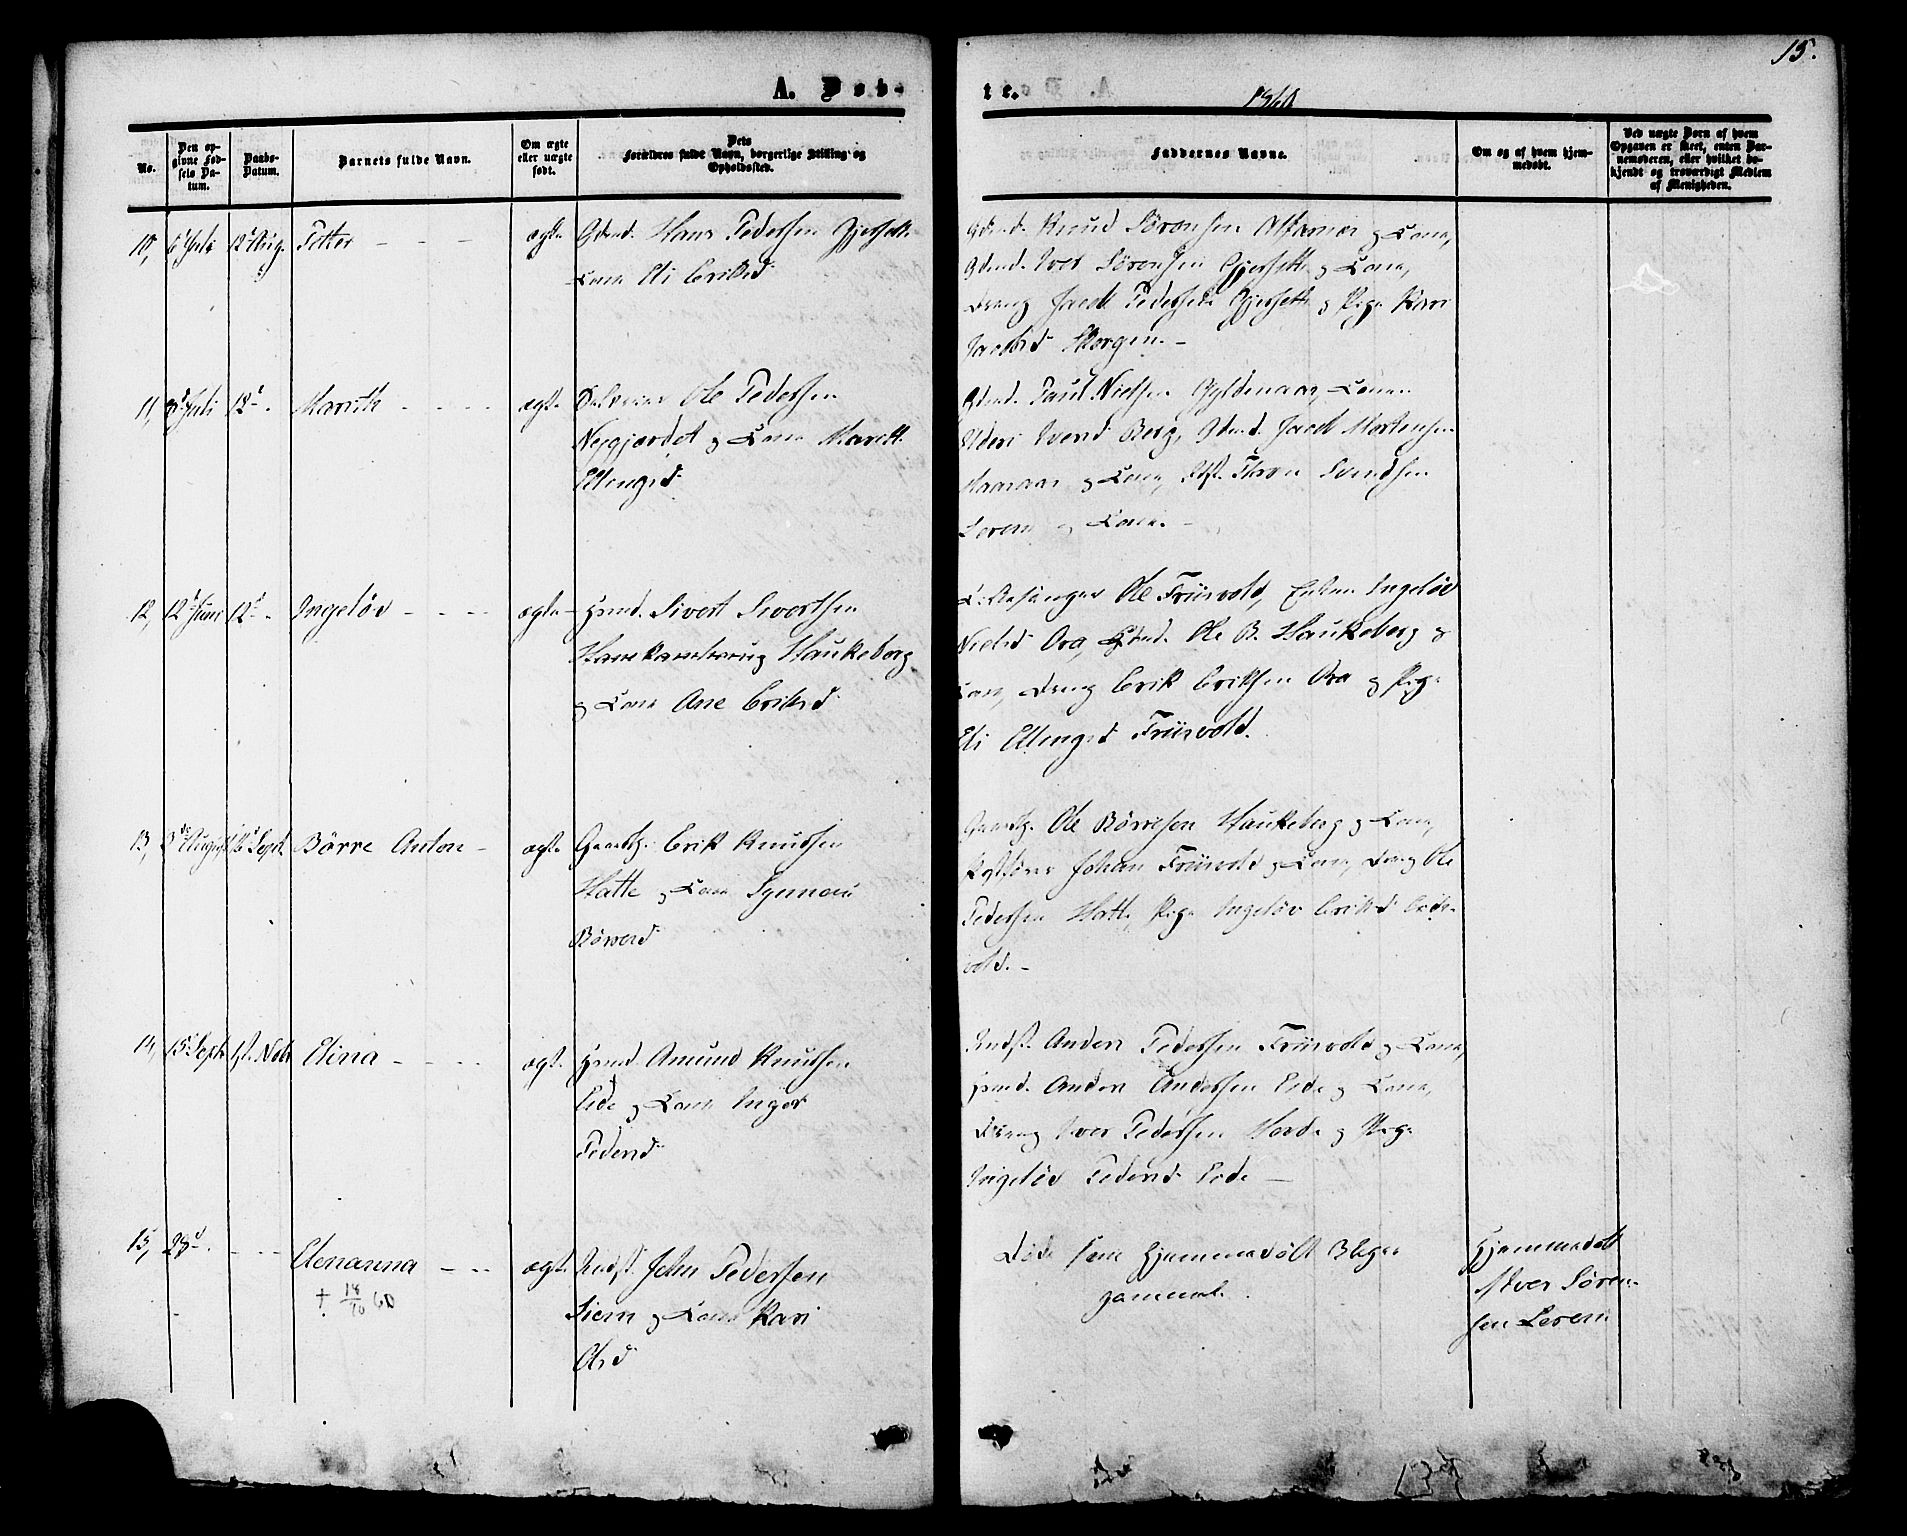 15.
A. Døb-
te.
1860
No.
Den op-
givne Fød-
sels Da-
tum.
Daabs-
Datum.
Barnets fulde Navn.
Om ægte
eller uægte
født.
Dets
Forældres fulde Navn, borgerlige Stilling og
Opholdssted.
Faddernes Navne.
Om og af hvem hjem-
medøbt.
Ved uægte Børn af hvem
Opgaven er skeet, enten Bar-
nemoderen, eller hvilket be-
kjendt og troværdigt Medlem
af Menigheden.
10, Juli 12 Aug. Petter - - - ægte Gdmd. Hans Pedersen Gjerset
Kone Eli Eriksd
Gdmd. Knud Sørensen og Kone,
Gdmd. Iver Sørensen Gjerseth og Kone,
Dreng Jacob Pedersen Gjerseth og Pige Kari
Jacobsd Skorgen. -
11, Juli 12 Marith - - - - ægte Ole Pedersen
Nejgjærdet og Kone Marith
Ellingsd
Gdmd. Paul Nielsen Gyldenaas, Konen
Berg, Gdmd. Jacob Mortensen
og Kone, Svendsen
Lerem og Kone. -
12, 12 Juni 12 Ingeløv - - - - ægte Hsmd. Sivert Sivertsen
Haukeberg
og Kone Ane Eriksd
Kirkesanger Ole Friisvold, Enken Ingeløv
Nielsd Ora, Gdmd. Ole B. Haukeberg og
Kone, Dreng Erik Eriksen Ora og Pige
Eli Ellingsd Friisvold.
13, 3de August Sept. Børre Anton - ægte Gaardbr. Erik Knudsen
Hatle og Kone Synnøvi
Børresd
Gaardbr. Ole Børresen Haukeberg og Kone,
Johan Friisvold og Kone, Dreng Ole
Pedersen Hatle, Pige Ingeløv Eriksd
vold. -
14, 15 Sept 1ste Nobr Elina - - - - ægte Hsmd Amund Knudsen
Eide og Kone Inger
Pedersd
Anders Pedersen Friisvold og Kone,
Hsmd. Anders Andersen Eide og Kone,
Dreng Iver Pedersen og Pige
Ingeløv Pedersd Eide -
15, 28 - - - Elenanna - - - ægte John Pedersen
Siem og Kone Kari
Olsd
† 14/10 60
Døde som Hjemmedøbt 3 Uger
gammel.
Hjemmedøbt
Iver Søren-
sen Lerem